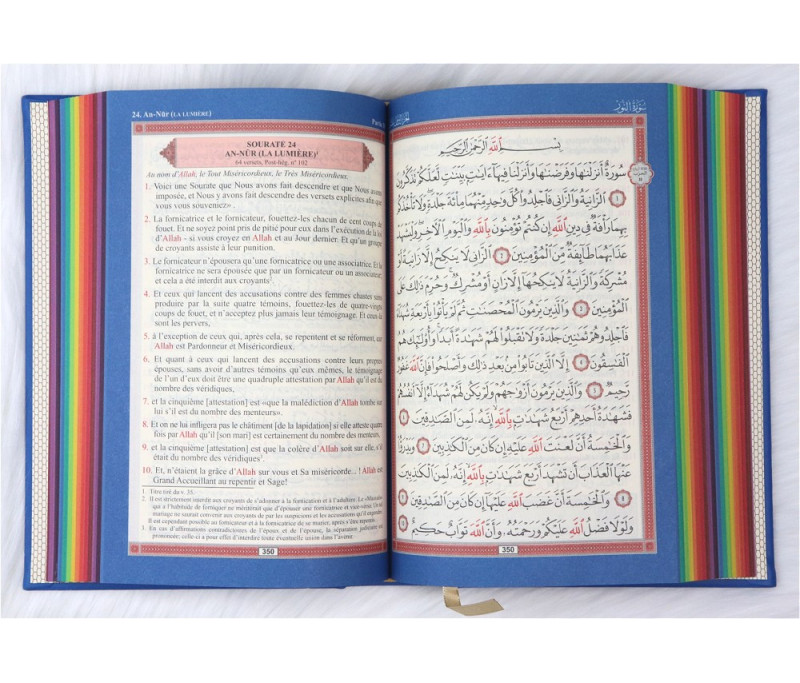 24. An-Nûr (LA LUMIÈRE)
SOURATE 24
AN-NÛR (LA LUMIÈRE)¹
64 versets, Post-hég. n° 102
Au nom d'Allah, le Tout Miséricordieux, le Très Miséricordieux.
1. Voici une Sourate que Nous avons fait descendre et que Nous avons
imposée, et Nous y avons fait descendre des versets explicites afin que
vous vous souveniez» .
2. La fornicatrice et le fornicateur, fouettez-les chacun de cent coups de
fouet. Et ne soyez point pris de pitié pour eux dans l'exécution de la loi
d'Allah - si vous croyez en Allah et au Jour dernier. Et qu'un groupe
de croyants assiste à leur punition.
3. Le fornicateur n'épousera qu'une fornicatrice ou une associatrice. Et la
fornicatrice ne sera épousée que par un fornicateur ou un associateur;
et cela a été interdit aux croyants²
4. Et ceux qui lancent des accusations contre des femmes chastes sans
produire par la suite quatre témoins, fouettez-les de quatre-vingts
coups de fouet, et n'acceptez plus jamais leur témoignage. Et ceux-là
sont les pervers,
5. à l'exception de ceux qui, après cela, se repentent et se réforment, car
Allah est Pardonneur et Miséricordieux.
6. Et quant à ceux qui lancent des accusations contre leurs propres
épouses, sans avoir d'autres témoins qu'eux mêmes, le témoignage
de l'un d'eux doit être une quadruple attestation par Allah qu'il est du
nombre des véridiques,
7. et la cinquième [attestation] est «que la malédiction d'Allah tombe sur
lui s'il est du nombre des menteurs».
8. Et on ne lui infligera pas le châtiment [de la lapidation] si elle atteste quatre
fois par Allah qu'il [son mari] est certainement du nombre des menteurs,
9. et la cinquième [attestation] est que la colère d'Allah soit sur elle, s'il
était du nombre des véridiques³
10. Et, n'étaient la grâce d'Allah sur vous et Sa miséricorde...! Allah est
Grand Accueillant au repentir et Sage!
1. Titre tiré du v. 35.
2. Il est strictement interdit aux croyants de s'adonner à la fornication et à l'adultère.
350
سورة النور
بسم الله الرحمن الرحيم
سورة أنزلنها وفرضنها وأنزلنا فيها ءايت بينت لعلكم تذكرون
١ الزانية والزانى فاجلدوا كل وحد منهما مائة جلدة ولا تأخذكم
بهما رأفة فى دين الله إن كنتم تؤمنون بالله واليوم الأخر وليشهد
عذابهما طائفة من المؤمنين ٢ الزانى لا ينكح إلا زانية أو
مشركة والزانية لا ينكحها إلا زان أو مشرك وحرم ذلك على
المؤمنين ٣ والذين يرمون المحصنت ثم لم يأتوا بأربعة شهداء
فاجلدوهم ثمنين جلدة ولا تقبلوا لهم شهدة أبدا وأولئك هم
الفسقون ٤ إلا الذين تابوا من بعد ذلك وأصلحوا فإن الله غفور
رحيم ٥ والذين يرمون أزوجهم ولم يكن لهم شهداء إلا أنفسهم
فشهدة أحدهم أربع شهدت بالله إنه لمن الصدقين ٦
والخمسة أن لعنت الله عليه إن كان من الكذبين ٧ ويدرؤا
عنها العذاب أن تشهد أربع شهدت بالله إنه لمن الكذبين
٨ والخمسة أن غضب الله عليها إن كان من الصدقين ٩
ولولا فضل الله عليكم ورحمته وأن الله تواب حكيم ١٠
350